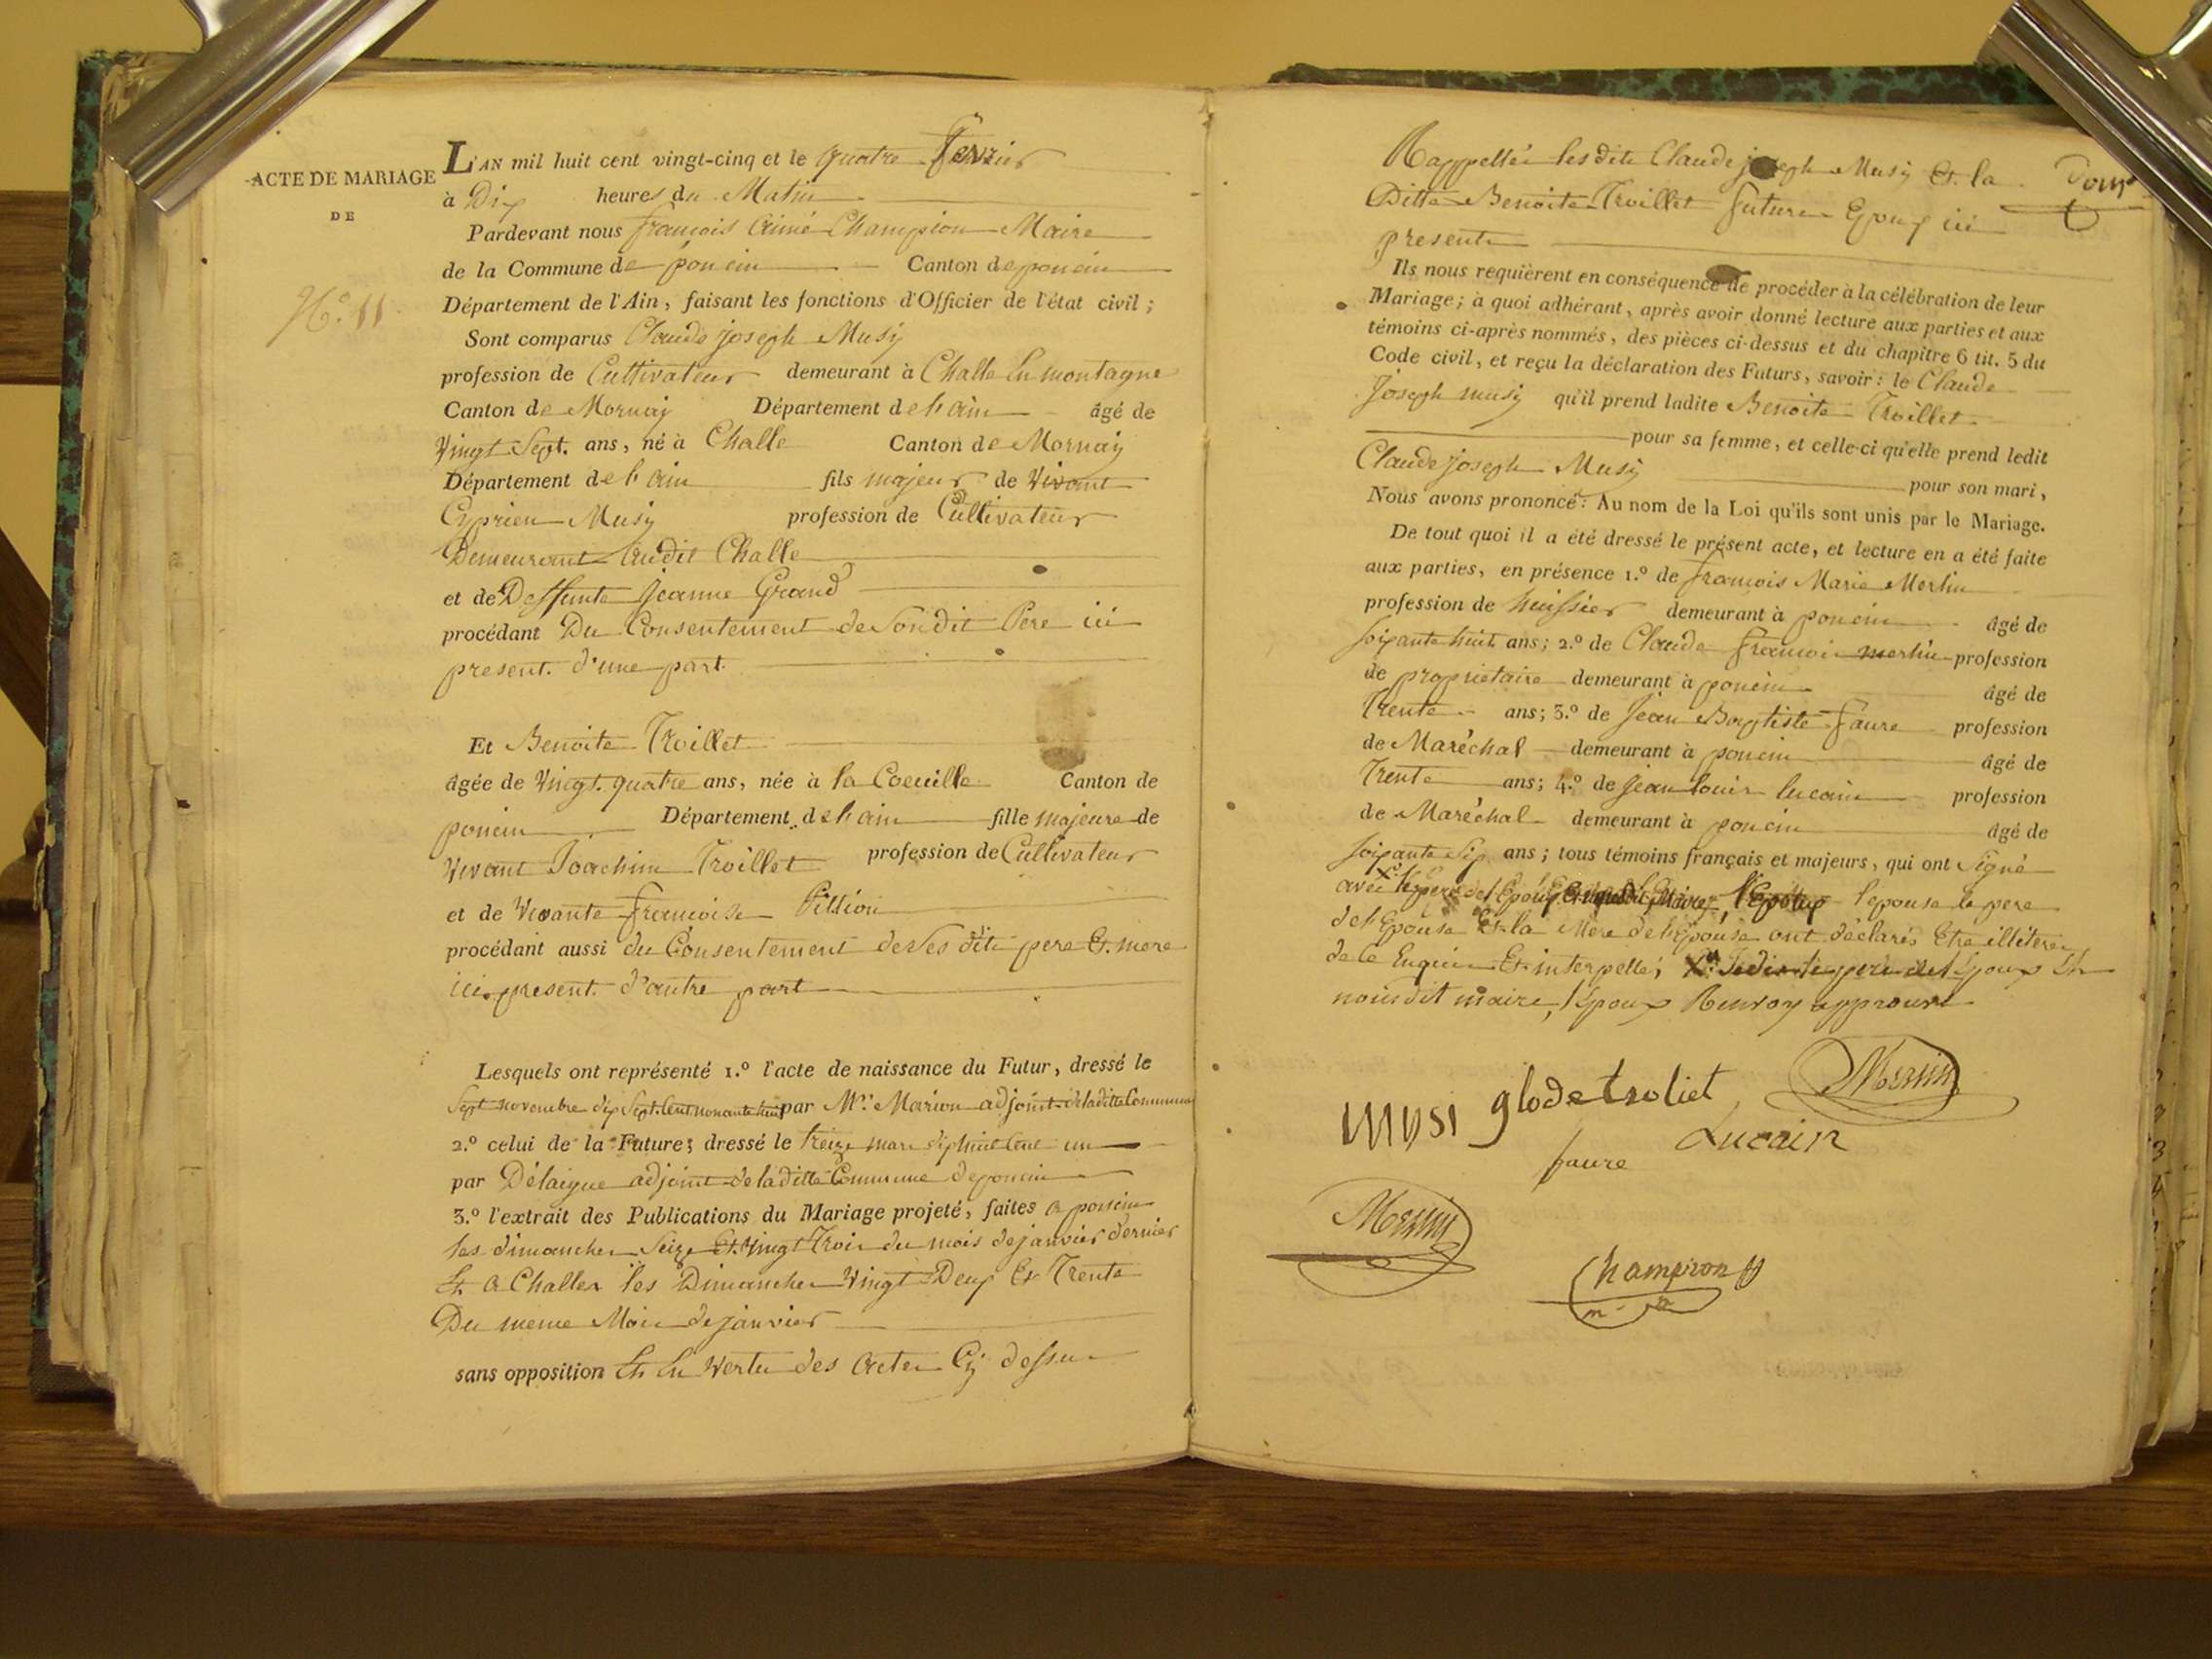 ACTE DE MARIAGE
DE
N.º 11
L'AN mil huit cent vingt-cinq et le quatre fevrier
à Dix heures du Matin
Pardevant nous françois Aimé Champion Maire
de la Commune de poncin Canton de poncin
Département de l'Ain, faisant les fonctions d'Officier de l'état civil ;
Sont comparus Claude joseph Musy
profession de Cultivateur demeurant à Challe En montagne
Canton de Mornay Département de l'ain âgé de
Vingt Sept. ans, né à Challe Canton de Mornay
Département de l'ain fils majeur de Vivant
Cyprien Musy profession de Cultivateur
Demeurant Audit Challe
et de Deffunte Jeanne Grand
procédant Du Consentement de Son dit Pere ici
present. d'une part.
Et Benoite Troillet
âgée de Vingt. quatre ans, née à la Coeuille Canton de
poncin Département de l'ain fille majeure de
Vivant Joachim Troillet profession de Cultivateur
et de Vivante françoise
procédant aussi du Consentement de Ses dits pere Et mere
ici present. d'autre part
Lesquels ont représenté 1.º l'acte de naissance du Futur, dressé le
Sept novembre dix Sept Cent nonante huit par Mr. Marion adjoint de la ditte Commune
2.º celui de la Future; dressé le treize mars dix huit Cent un
par Delaigue adjoint de la ditte Commune de poncin
3.º l'extrait des Publications du Mariage projeté, faites a poncin
les dimanches Seize Et Vingt Trois du mois de janvier dernier
Et a Challes les Dimanches Vingt Deux Et Trente
Du meme Mois de janvier
sans opposition Et En Vertu des Actes Cy dessus
Douze
Rappellés les dits Claude joseph Musy Et la
Ditte Benoite Troillet future Epoux ici
presents
Ils nous requièrent en conséquence de procéder à la célébration de leur
Mariage; à quoi adhérant, après avoir donné lecture aux parties et aux
témoins ci-après nommés, des pièces ci-dessus et du chapitre 6 tit. 5 du
Code civil, et reçu la déclaration des Futurs, savoir: le Claude
Joseph musy qu'il prend ladite Benoite Troillet
pour sa femme, et celle-ci qu'elle prend ledit
Claude joseph Musy pour son mari,
Nous avons prononcé: Au nom de la Loi qu'ils sont unis par le Mariage.
De tout quoi il a été dressé le présent acte, et lecture en a été faite
aux parties, en présence 1.º de françois Marie Merlin
profession de huissier demeurant à poncin âgé de
Soixante huit ans; 2.º de Claude françois merlin profession
de proprietaire demeurant à poncin âgé de
Trente ans; 3.º de Jean Baptiste faure profession
de Maréchal demeurant à poncin âgé de
Trente ans; 4.º de Jean louis lucain profession
de Maréchal demeurant à poncin âgé de
Soixante Six ans; tous témoins français et majeurs, qui ont Signé
avec l'epouse le pere
de l'Epouse Et la Mere de l'Epouse ont déclarés Etre illiterés
de Ce Enquis Et interpellés, le pere de l'Epoux Et
nous dit maire, l'Epoux Renvoy approuvé
Merlin
MUSI glode troliet
faure Lucain
Merlin
Champion